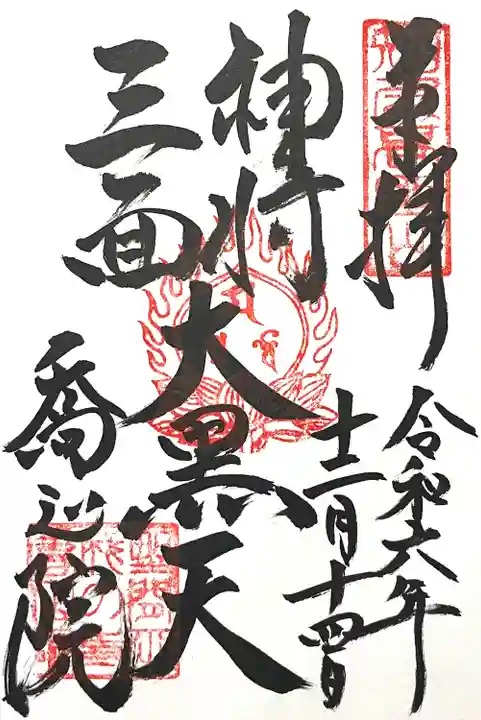 奉拝
令和六年
十二月十四日
神将
三面
大黒天
喬巡院